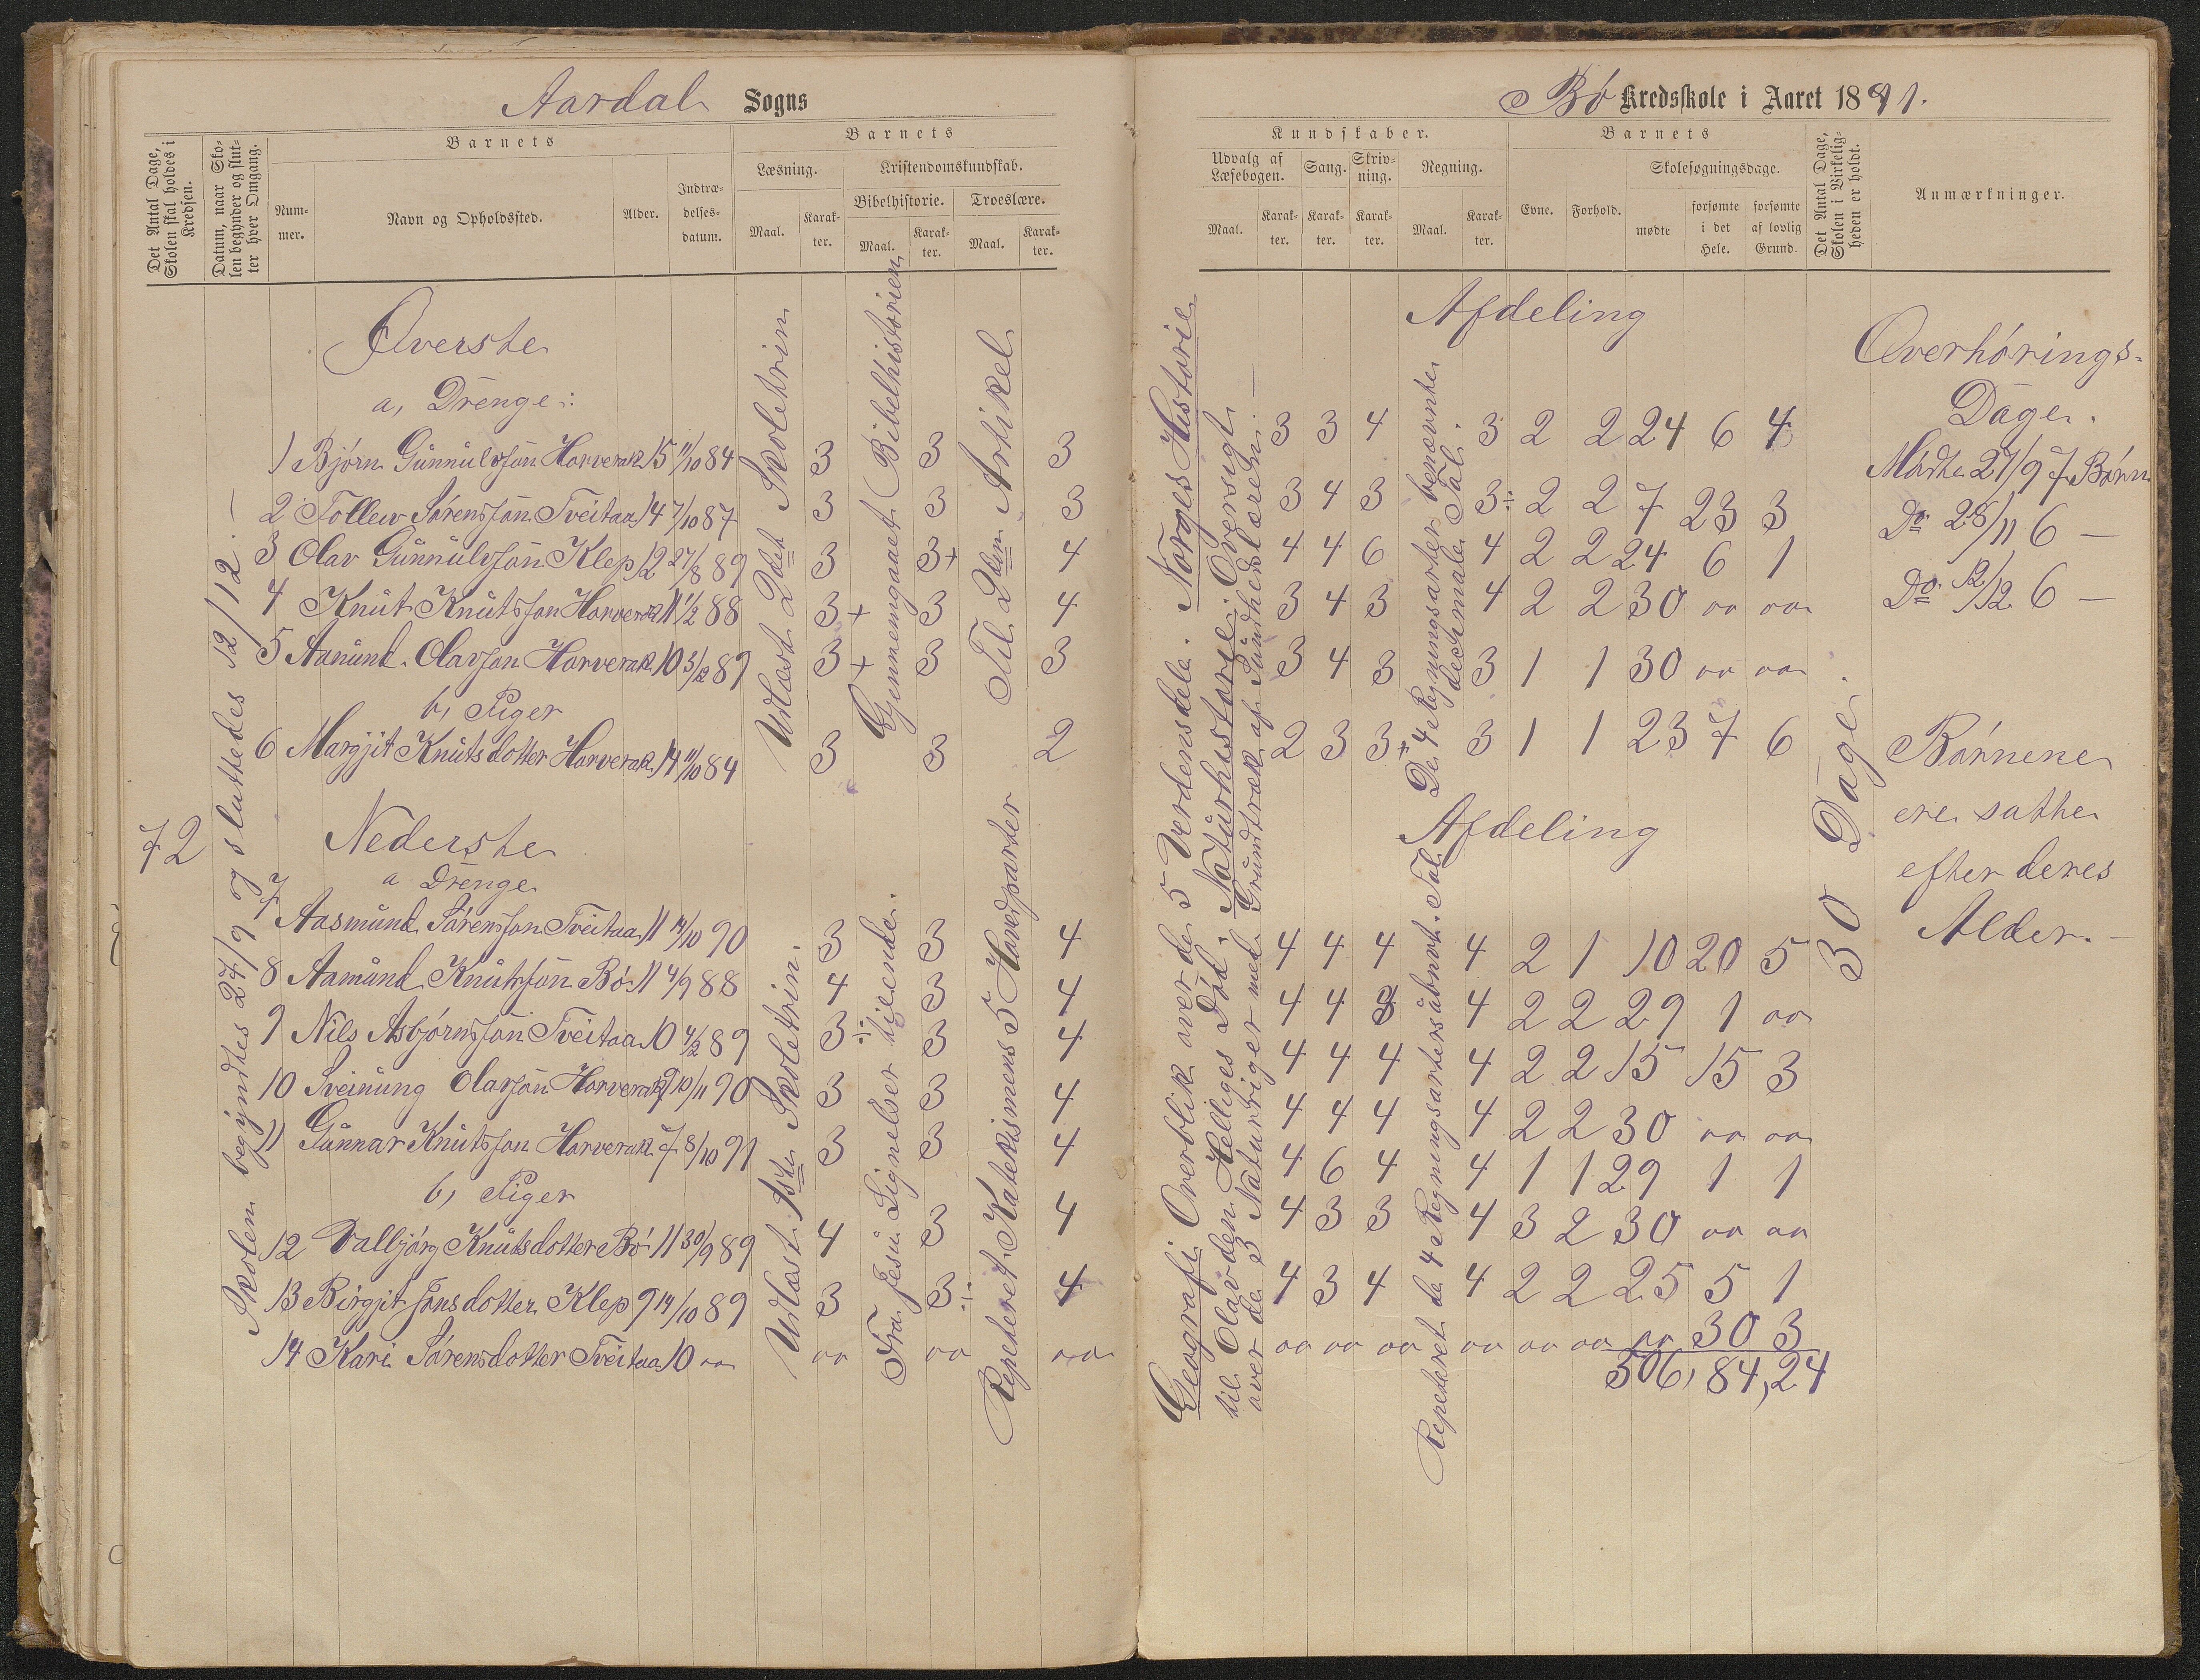 Aardal Sogns
Det Antal Dage, Skolen skal holdes i Kredsen.
Datum, naar Skolen begynder og slutter hver Omgang.
Barnets
Nummer.
Navn og Opholdssted.
Alder.
Indtrædelsesdatum.
Barnets
Læsning.
Maal.
Karakter.
Kristendomskundskab.
Bibelhistorie.
Maal.
Karakter.
Troeslære.
Maal.
Karakter.
72
Skolen begyndtes 24/9 og sluttedes 12/12. —
Øverste
a, Drenge:
1 Bjørn Gunnulvson Horverak 15 11/10 84 3 3 3
2 Tollev Sørensson Tveitaa 14 7/10 87 3 3 3
3 Olav Gunnulvson Klep 12 27/8 89 3 3+ 4
4 Knut Knutsson Horverak 11 1/2 88 3+ 3 4
5 Aanund Olavson Horverak 10 3/12 89 3+ 3 3
b, Piger
6 Margjit Knutsdotter Horverak 14 11/10 84 3 3 2
Udlæst 2det Skoletrin
Gjennemgaaet Bibelhistorien
Til 2den Artikel
Nederste
a Drenge
7 Aasmund Sørensson Tveitaa 11 14/10 90 3 3 4
8 Aamund Knutsson Bø 11 4/9 88 4 3 4
9 Nils Asbjørnsson Tveitaa 10 4/2 89 3÷ 3 4
10 Sveinung Olavson Horverak 9 10/11 90 3 3 4
11 Gunnar Knutsson Horverak 7 8/10 91 3 3 4
b, Piger
12 Valbjørg Knutsdotter Bø 11 30/9 89 4 3 4
13 Birgjit Jonsdotter Klep 9 14/10 89 3 3÷ 4
14 Kari Sørensdotter Tveitaa 10 oo oo oo oo
Udlæst 1ste Skoletrin.
Fra Jesu Lignelser tilende.
Repeteret Katekismens 5 Hovedparter
Bø Kredsskole i Aaret 1891.
Kundskaber.
Udvalg af Læsebogen.
Maal.
Karakter.
Sang.
Karakter.
Skrivning.
Karakter.
Regning.
Maal.
Karakter.
Barnets
Evne.
Forhold.
Skolesøgningsdage.
mødte
forsømte i det Hele.
forsømte af lovlig Grund.
Det Antal Dage, Skolen i Virkeligheden er holdt.
Anmærkninger.
Geografi Overblik over de 5 Verdensdele. Norges Historie
til Olav den Helliges Død. Naturhistorie: Oversigt
over de 3 Naturriger med Grundtræk af Sundhedslæren. —
Afdeling
De 4 Regningsarter benævnte
decimale Tal.
3 3 4 3 2 2 24 6 4
3 4 3 3÷ 2 2 7 23 3
4 4 6 4 2 2 24 6 1
3 4 3 4 2 2 30 oo oo
3 4 3 3 1 1 30 oo oo
2 3 3+ 3 1 1 23 7 6
Afdeling
Repeteret de 4 Regningsarter ubnvt. Tal
4 4 4 4 2 1 10 20 5
4 4 3 4 2 2 29 1 oo
4 4 4 4 2 2 15 15 3
4 4 4 4 2 2 30 oo oo
4 6 4 4 1 1 29 1 1
4 3 3 4 3 2 30 oo oo
4 3 4 4 2 2 25 5 1
oo oo oo oo oo oo oo 30 3
306, 84, 24
30 Dage.
Overhørings-
Dage.
Mødte 27/9 7 Børn
Do 28/11 6 —
Do 12/12 6 —
Børnene
ere satte
efter deres
Alder. —